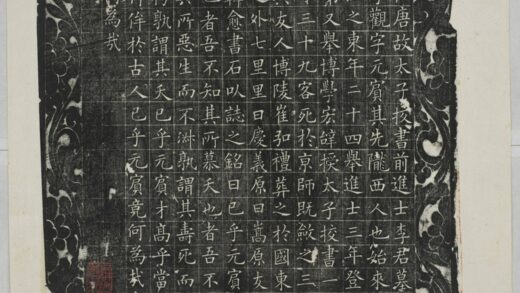 唐故太子挍書前進士李君墓
觀字元賓其先隴西人也始來
之東年二十四舉進士三年登
又舉博學宏辭授太子挍書一
三十九客死於京師既斂之三
友人博陵崔弘禮葬之於國東
之外七里里曰慶義原曰嵩原友
韓愈書石以誌之銘曰已乎元賓
也者吾不知其所慕夭也者吾不
其所惡生而不淑孰謂其壽死而
朽孰謂其夭已乎元賓才高乎當
行侔於古人已乎元賓竟何為哉
為哉